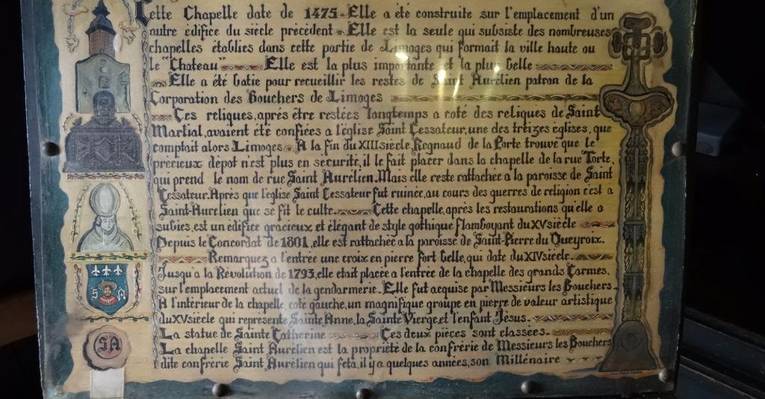 Cette Chapelle date de 1475. Elle a été construite sur l'emplacement d'un
autre édifice du siècle précédent. Elle est la seule qui subsiste des nombreuses
chapelles établies dans cette partie de Limoges qui formait la ville haute ou
le "Chateau" Elle est la plus importante et la plus belle
Elle a été batie pour recueillir les restes de Saint Aurélien patron de la
Corporation des Bouchers de Limoges
Ces reliques, après être restées longtemps a coté des reliques de Saint
Martial, avaient été confiées a l'église Saint Cessateur, une des treizes eglises, que
comptait alors Limoges. A la fin du XIIIsiècle, Regnaud de la Porte trouve que le
précieux dépot n'est plus en securite, il le fait placer dans la chapelle de la rue Torte,
qui prend le nom de rue Saint Aurélien. Mais elle reste rattachée a la paroisse de Saint
Cessateur. Après que l'église Saint Cessateur fut ruinée, au cours des guerres de religion c'est a
Saint-Aurelien que se fit le culte. Cette chapelle, après les restaurations qu'elle a
subies, est un édifice gracieux et élégant de style gothique flamboyant du XVsiècle
Depuis le Concordat de 1801, elle est rattachée a la paroisse de Saint-Pierre du Queyroix.
Remarquez a l'entrée une croix en pierre fort belle, qui date du XIVsiècle.
Jusqu'a la Révolution de 1793, elle était placée a l'entrée de la chapelle des grands Carmes,
sur l'emplacement actuel de la gendarmerie. Elle fut acquise par Messieurs les Bouchers.
A l'intérieur de la chapelle, coté gauche, un magnifique groupe en pierre de valeur artistique
du XVsiècle qui représente Sainte Anne, la Sainte Vierge, et l'enfant Jésus.
La statue de Sainte Catherine Ces deux pièces sont classées.
La chapelle Saint Aurélien est la propriété de la confrérie de Messieurs les Bouchers
dite confrérie Saint Aurélien qui feta, il y a quelques années, son Millénaire
S A
SA